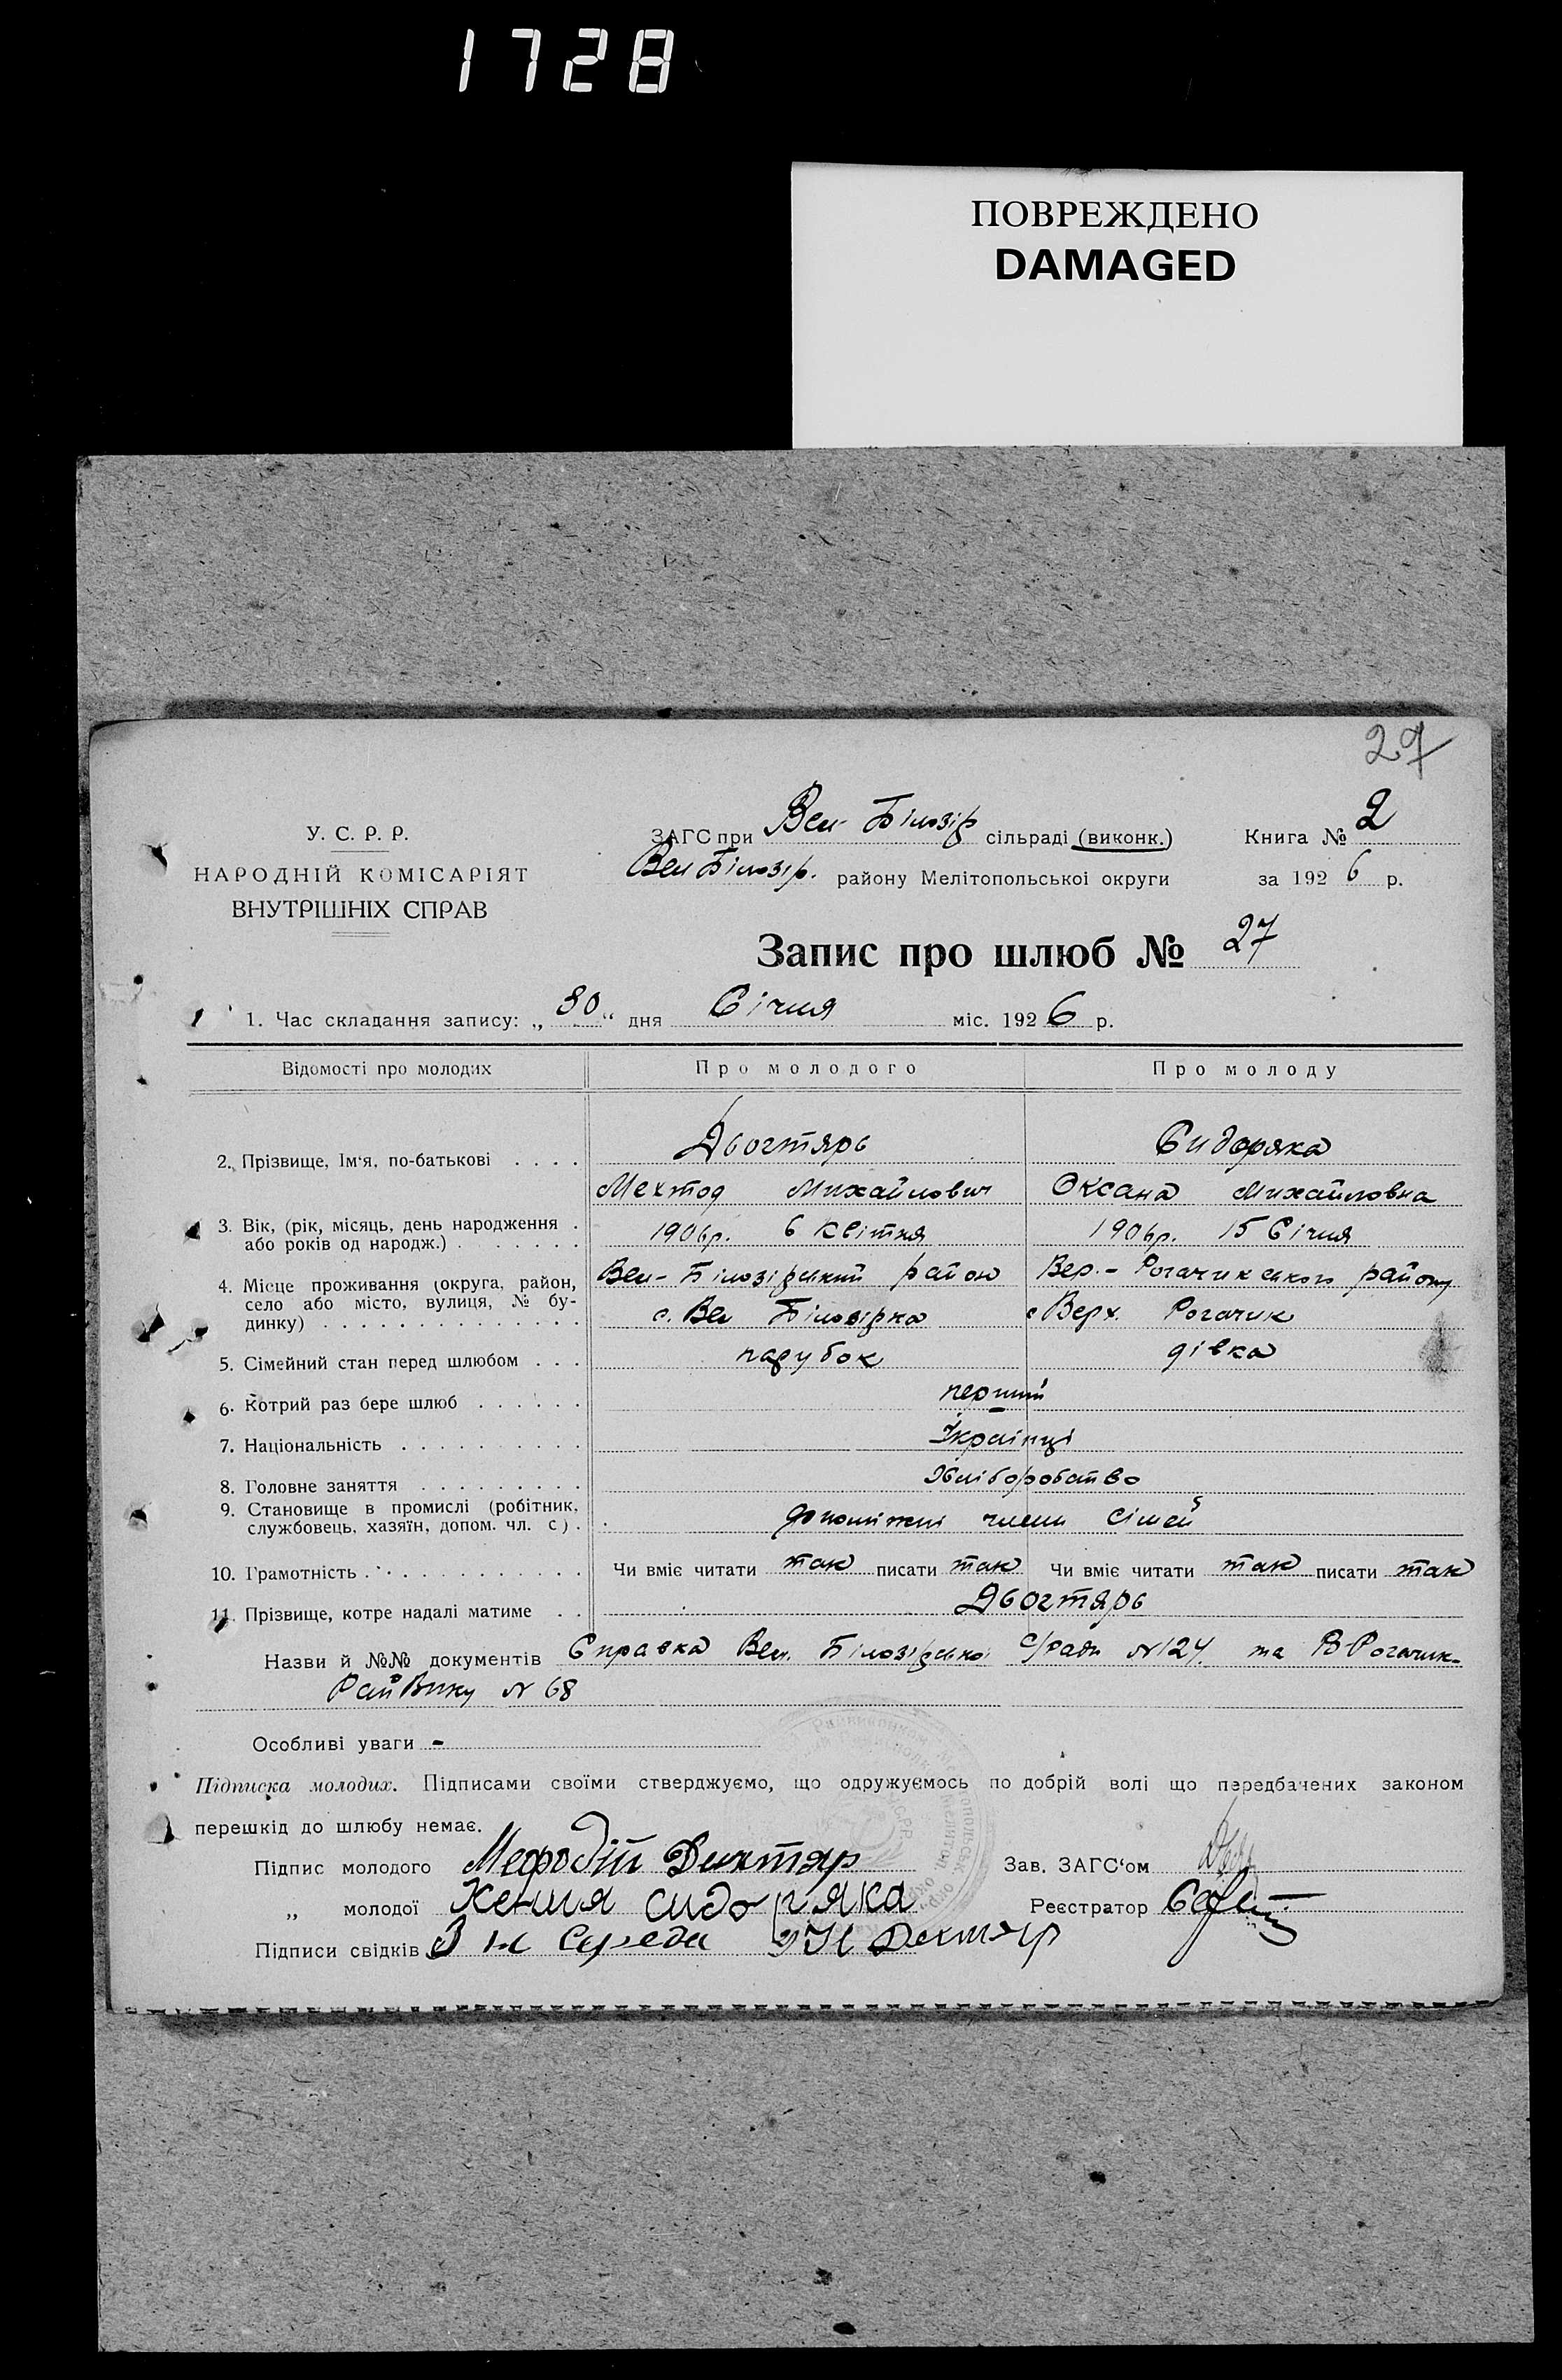 1728
ПОВРЕЖДЕНО
DAMAGED
27
У. С. Р. Р.
НАРОДНІЙ КОМІСАРІЯТ
ВНУТРІШНІХ СПРАВ
ЗАГС при Вел-Білозір сільраді (виконк.)
Вел Білозір. району Мелітопольської округи
Книга № 2
за 1926 р.
Запис про шлюб № 27
1. Час складання запису: „30“ дня Січня міс. 1926 р.
Відомості про молодих Про молодого Про молоду
2. Прізвище, Ім'я, по-батькові . . . . Дьогтярь Сидоряка
Мехтод Михайлович Оксана Михайловна
3. Вік, (рік, місяць, день народження . 1906р. 6 Квітня 1906р. 15 Січня
або років од народж.) . . . . . .
4. Місце проживання (округа, район, Вел-Білозірський район Вер.-Рогачикського району
село або місто, вулиця, № бу-
динку) . . . . . . . . . . . . . с. Вел Білозірка с Верх. Рогачик
5. Сімейний стан перед шлюбом . . . парубок дівка
6. Котрий раз бере шлюб . . . . . . перший
7. Національність . . . . . . . . . . Українці
8. Головне заняття . . . . . . . . . Хліборобство
9. Становище в промислі (робітник, допоміжні члени сімей
службовець, хазяїн, допом. чл. с) .
10. Грамотність . . . . . . . . . . . Чи вміє читати так писати так Чи вміє читати так писати так
11. Прізвище, котре надалі матиме . . Дьогтярь
Назви й №№ документів Справка Вел. Білозірської С/ради №124. та В-Рогачик-
РайВику № 68
Особливі уваги -
Підписка молодих. Підписами своїми стверджуємо, що одружуємось по добрій волі що передбачених законом
перешкід до шлюбу немає.
Підпис молодого Мефодій Дихтяр Зав. ЗАГС'ом
„ молодої Ксения сидоряка Реєстратор
Підписи свідків Середа Дехтяр